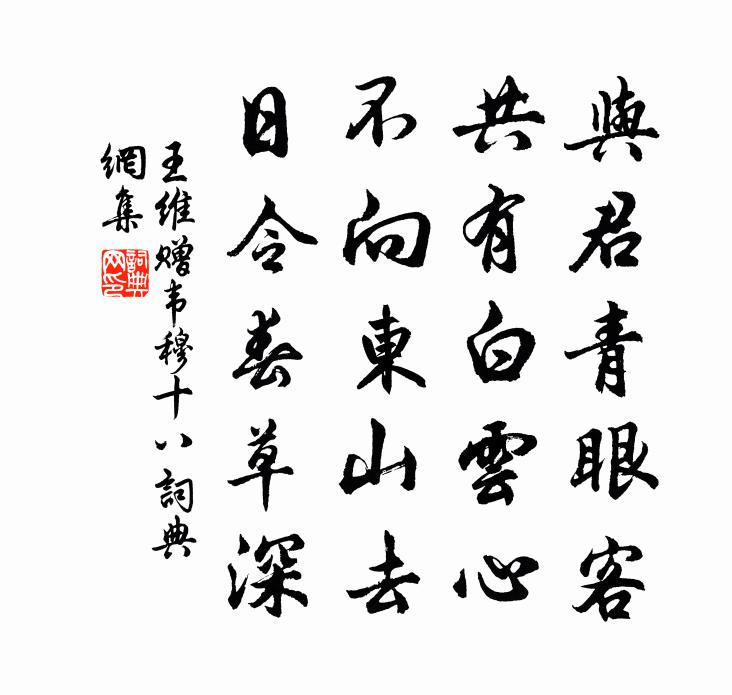 與君青眼客
共有白雲心
不向東山去
日令春草深
王維贈韦穆十八 詞典
網集
詞典
网印